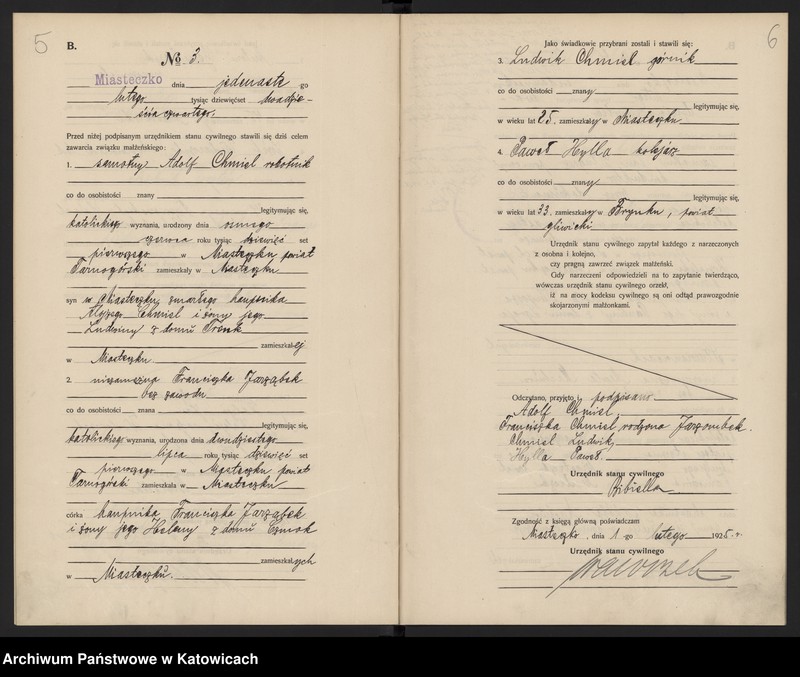 5
B.
№ 3.
Miasteczko dnia jedenaste go
lutego tysiąc dziewięćset dwadzie-
ścia czwartego.
Przed niżej podpisanym urzędnikiem stanu cywilnego stawili się dziś celem
zawarcia związku małżeńskiego:
1. samotny Adolf Chmiel robotnik
co do osobistości znany
legitymując się,
katolickiego wyznania, urodzony dnia ósmego
czerwca roku tysiąc dziewięć set
pierwszego w Miasteczku powiat
Tarnogórski zamieszkały w Miasteczku
syn w Miasteczku zmarłego hauptnika
Chmiel i żony jego
Ludwiny z domu
zamieszkałej
w Miasteczku
2. niezamężna Franciszka Jarząbek
bez zawodu
co do osobistości znana
legitymując się,
katolickiego wyznania, urodzona dnia dwudziestego
lipca roku tysiąc dziewięć set
pierwszego w Miasteczku powiat
Tarnogórski zamieszkała w Miasteczku
córka hauptnika Franciszka Jarząbek
i żony jego Heleny z domu
zamieszkałych
w Miasteczku.
6
Jako świadkowie przybrani zostali i stawili się:
3. Ludwik Chmiel górnik
co do osobistości znany
legitymując się,
w wieku lat 25. zamieszkały w Miasteczku
4. Paweł Hylla kolejarz
co do osobistości znany
legitymując się,
w wieku lat 33. zamieszkały w Frynku, powiat
gliwicki
Urzędnik stanu cywilnego zapytał każdego z narzeczonych
z osobna i kolejno,
czy pragną zawrzeć związek małżeński.
Gdy narzeczeni odpowiedzieli na to zapytanie twierdząco,
wówczas urzędnik stanu cywilnego orzekł,
iż na mocy kodeksu cywilnego są oni odtąd prawozgodnie
skojarzonymi małżonkami.
Odczytano, przyjęto i podpisano
Adolf Chmiel.
Franciszka Chmiel rodzona Jarzombek.
Chmiel Ludwik
Hylla Paweł.
Urzędnik stanu cywilnego
Bibiella
Zgodność z księgą główną poświadczam
Miasteczko, dnia 1-go lutego 1925 r.
Urzędnik stanu cywilnego
Archiwum Państwowe w Katowicach